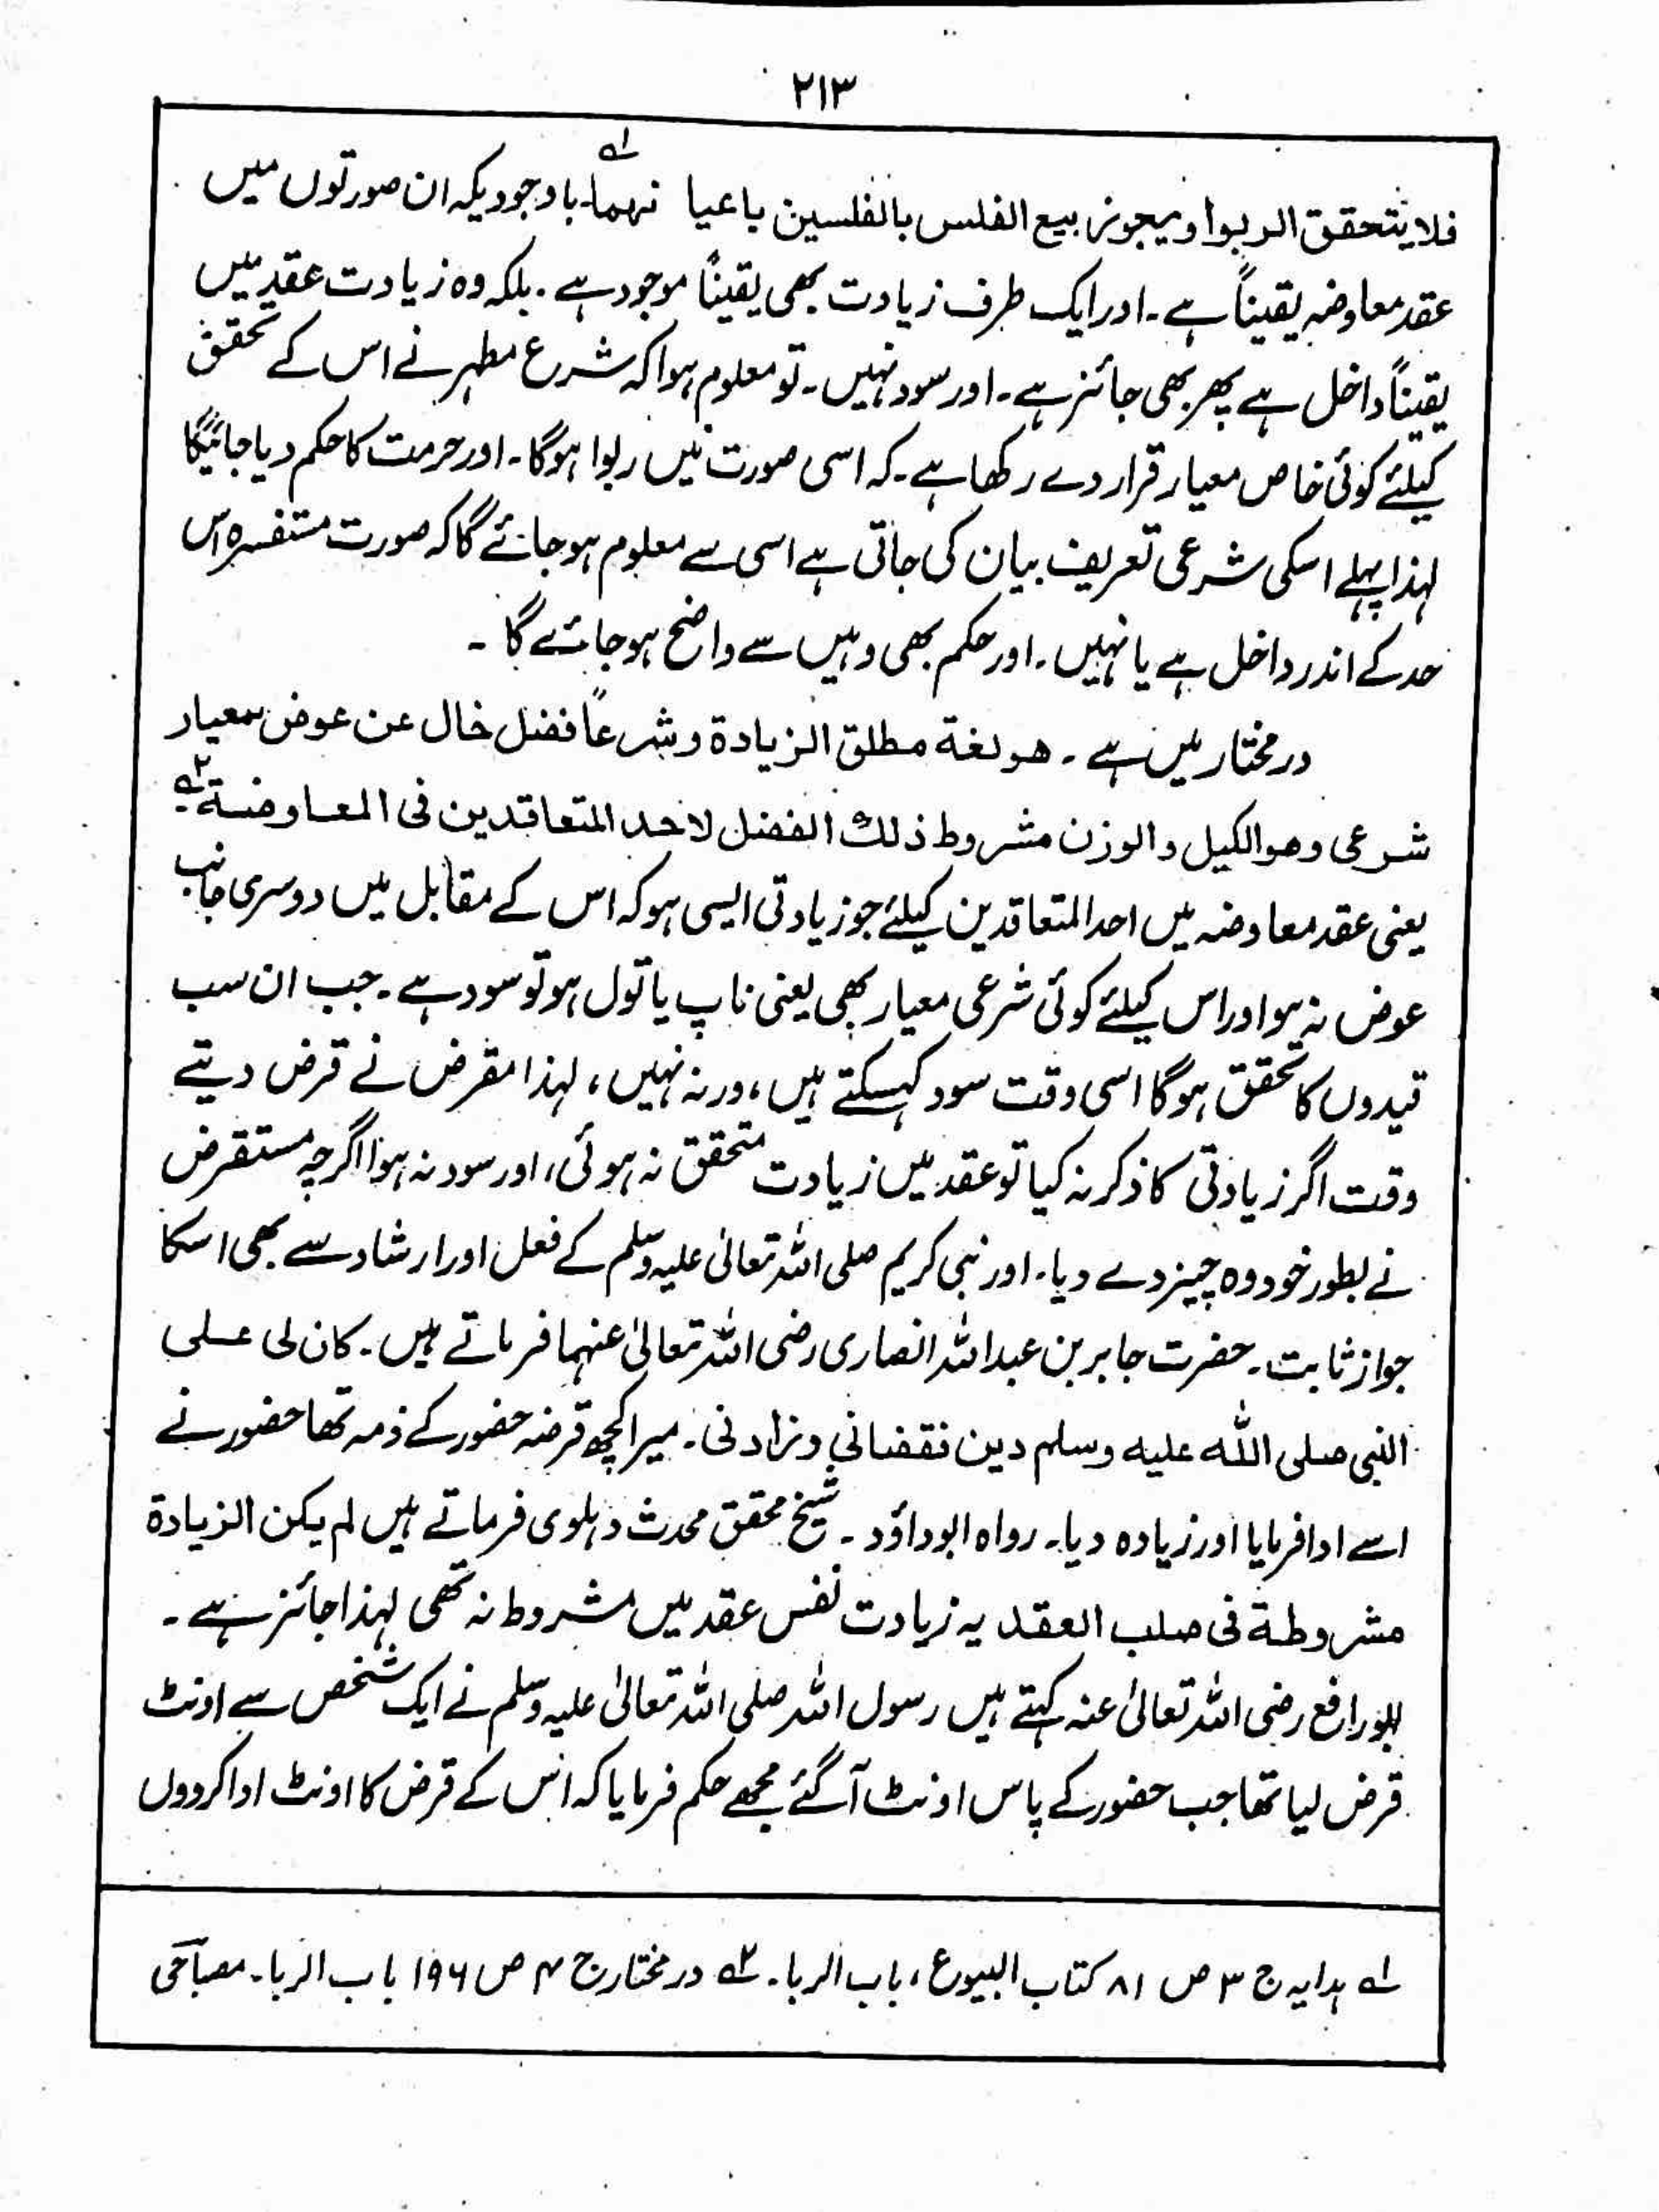 ۲۱۳
فلا یتحقق الربوا ویجوز بیع الفلس بالفلسین باعیا نہما۔۱ باوجودیکہ ان صورتوں میں
عقد معاوضہ یقیناً ہے۔ اور ایک طرف زیادت بھی یقیناً موجود ہے۔ بلکہ وہ زیادت عقد میں
یقیناً داخل ہے پھر بھی جائز ہے۔ اور سود نہیں۔ تو معلوم ہوا کہ شرع مطہر نے اس کے تحقق
کیلئے کوئی خاص معیار قرار دے رکھا ہے۔ کہ اسی صورت میں ربوا ہوگا۔ اور حرمت کا حکم دیا جائیگا
لہذا پہلے اسکی شرعی تعریف بیان کی جاتی ہے اسی سے معلوم ہو جائے گا کہ صورت مستفسرہ اس
حد کے اندر داخل ہے یا نہیں۔ اور حکم بھی وہیں سے واضح ہو جائے گا۔
درمختار میں ہے۔ ھو لغة مطلق الزیادة وشرعاً فضل خال عن عوض بمعیار
شرعی وھو الکیل والوزن مشروط ذلك الفضل لاحد المتعاقدین فی المعاوضة۔۲
یعنی عقد معاوضہ میں احد المتعاقدین کیلئے جو زیادتی ایسی ہو کہ اس کے مقابل میں دوسری جانب
عوض نہ ہو اور اس کیلئے کوئی شرعی معیار بھی یعنی ناپ یا تول ہو تو سود ہے۔ جب ان سب
قیدوں کا تحقق ہوگا اسی وقت سود کہسکتے ہیں، ورنہ نہیں، لہذا مقرض نے قرض دیتے
وقت اگر زیادتی کا ذکر نہ کیا تو عقد میں زیادت متحقق نہ ہوئی، اور سود نہ ہوا اگرچہ مستقرض
نے بطور خود وہ چیز دے دیا۔ اور نبی کریم صلی اللہ تعالیٰ علیہ وسلم کے فعل اور ارشاد سے بھی اسکا
جواز ثابت۔ حضرت جابر بن عبد اللہ انصاری رضی اللہ تعالیٰ عنہما فرماتے ہیں۔ کان لی علی
النبی صلی الله علیه وسلم دین فقضانی وزادنی۔ میرا کچھ قرضہ حضور کے ذمہ تھا حضور نے
اسے ادا فرمایا اور زیادہ دیا۔ رواہ ابوداؤد۔ شیخ محقق محدث دہلوی فرماتے ہیں لم یکن الزیادة
مشروطة فی صلب العقد یہ زیادت نفس عقد میں مشروط نہ تھی لہذا جائز ہے۔
ابورافع رضی اللہ تعالیٰ عنہ کہتے ہیں رسول اللہ صلی اللہ تعالیٰ علیہ وسلم نے ایک شخص سے اونٹ
قرض لیا تھا جب حضور کے پاس اونٹ آگئے مجھے حکم فرمایا کہ اس کے قرض کا اونٹ ادا کردوں
۱ ہدایہ ج ۳ ص ۸۱ کتاب البیوع، باب الربا۔ ۲ درمختار ج ۴ ص ۱۹۶ باب الربا۔ مصباحی